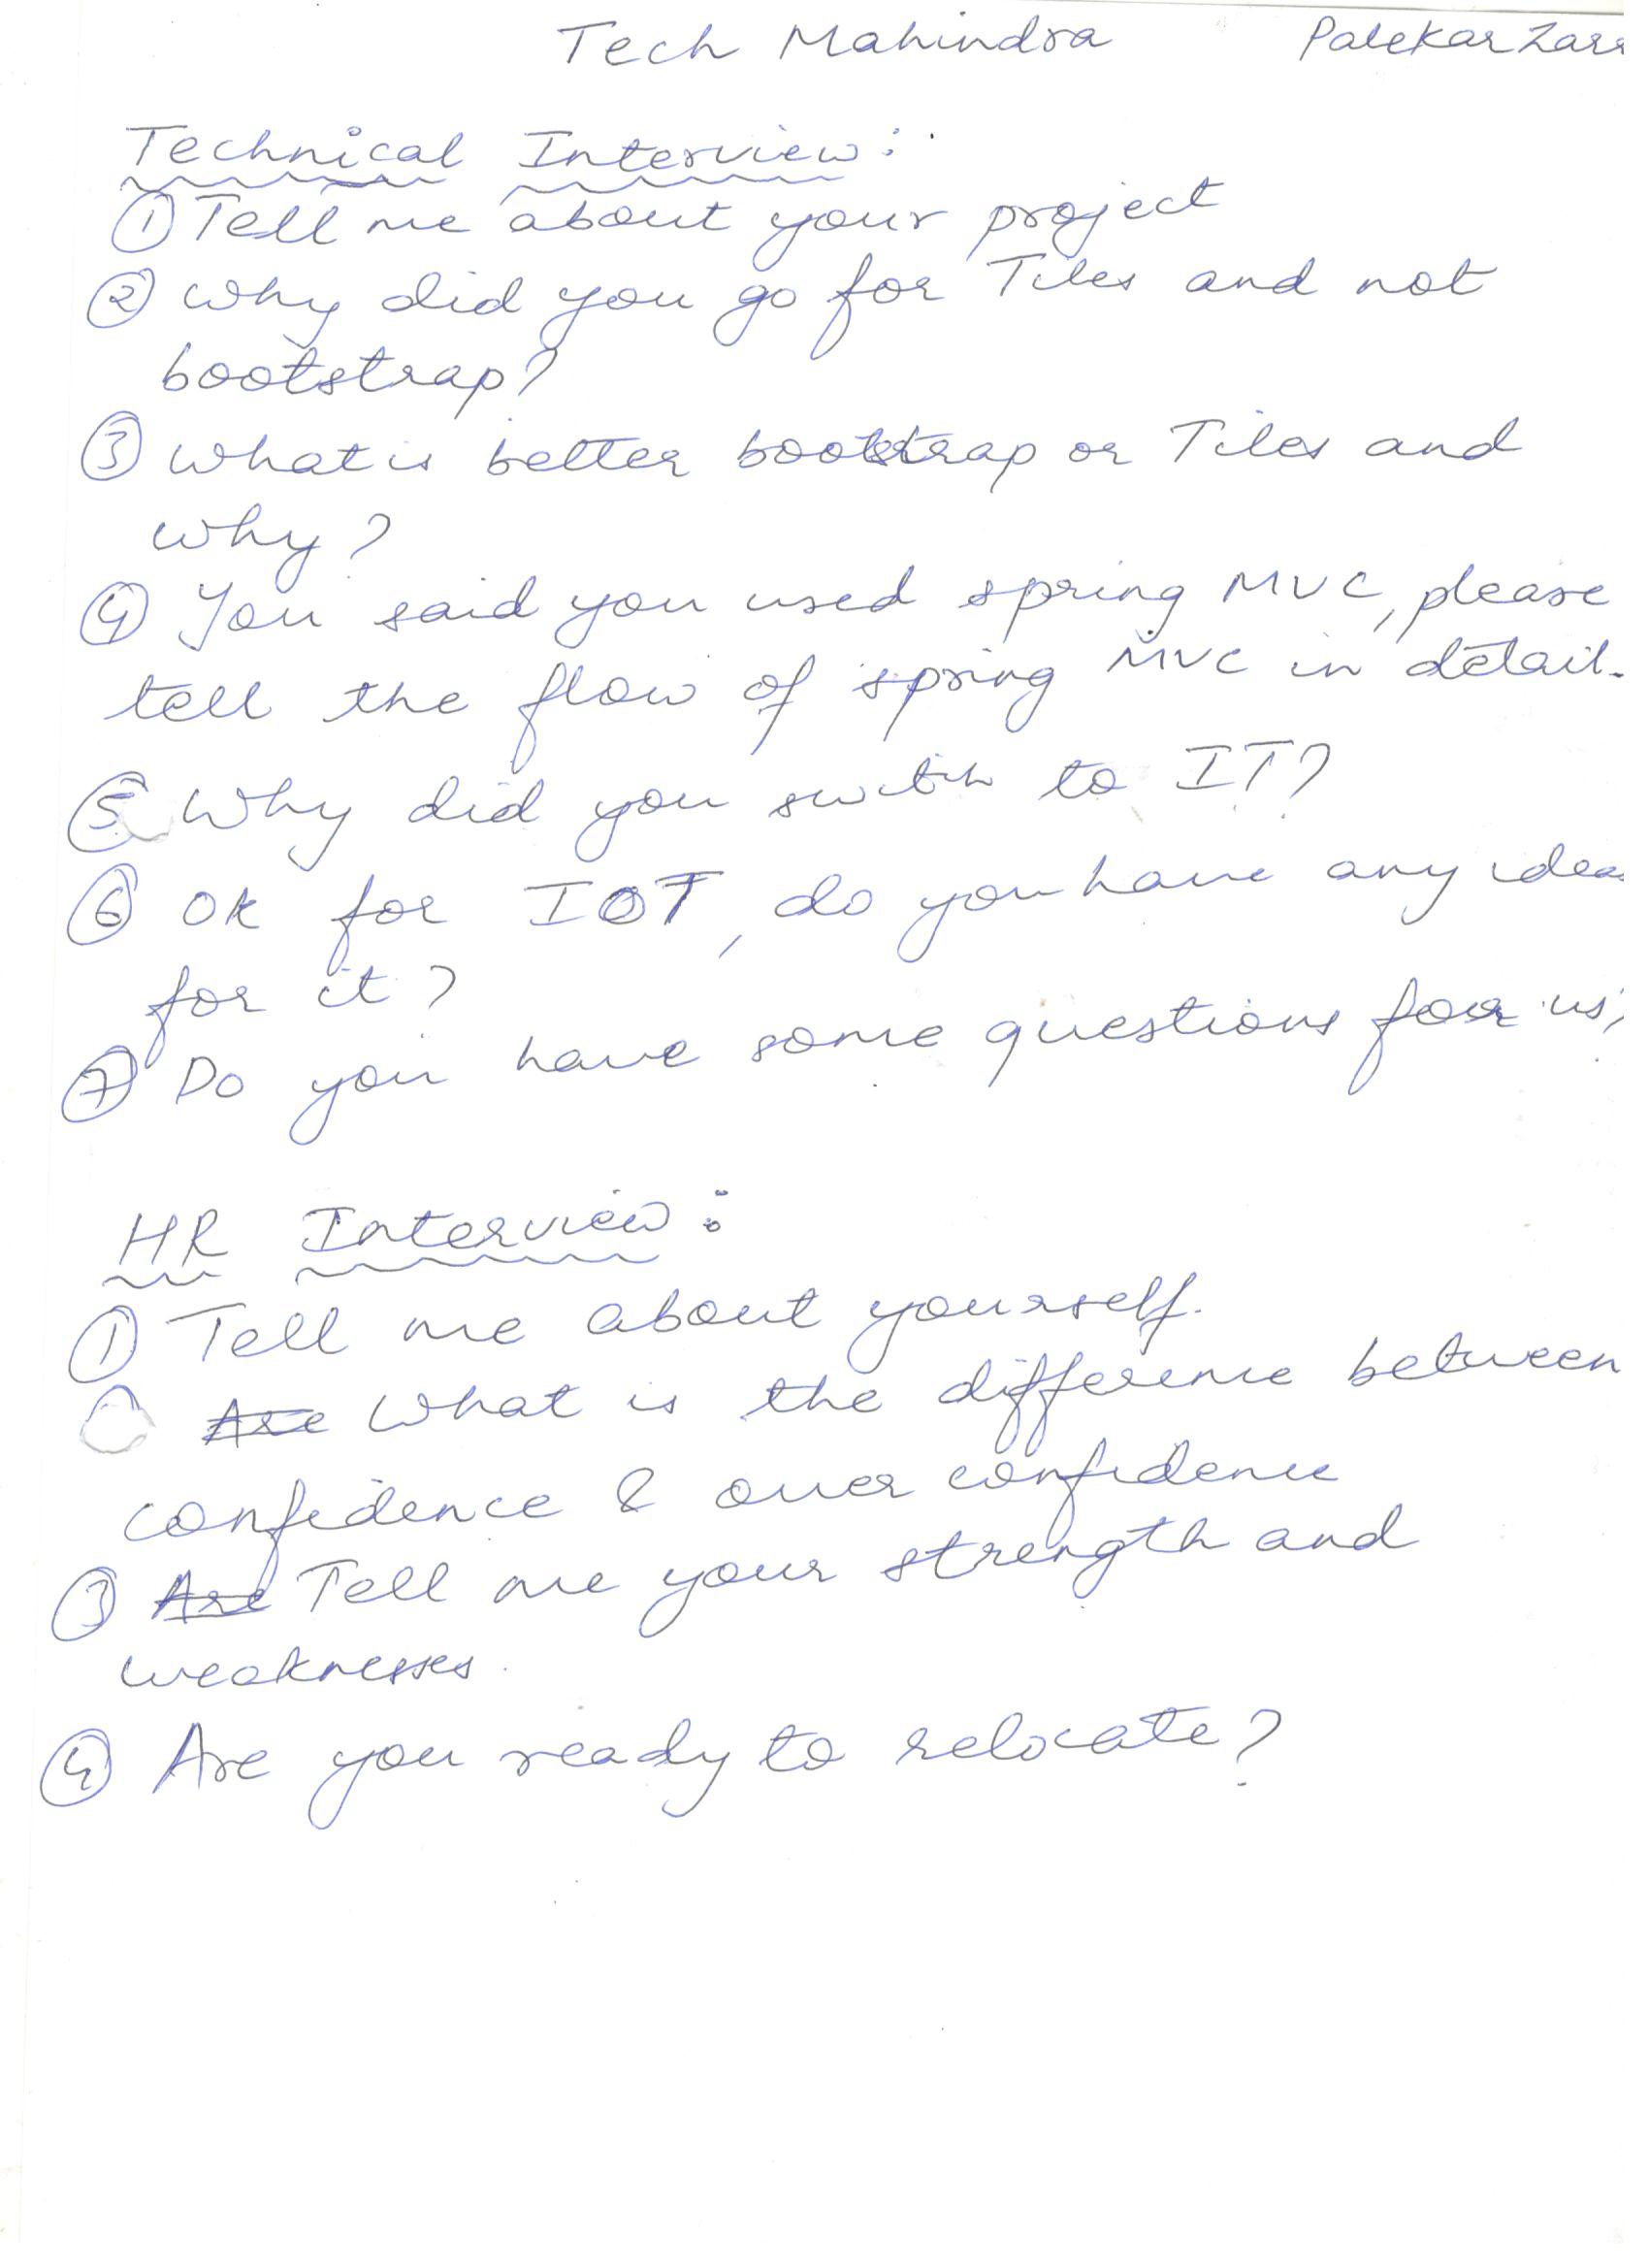 Tech Mahindra Palekar Zar
Technical Interview:
① Tell me about your project
② Why did you go for Tiles and not
bootstrap?
③ What is better bootstrap or Tiles and
why?
④ You said you used spring MVC, please
tell the flow of spring MVC in detail.
⑤ Why did you switch to IT?
⑥ Ok for IOT, do you have any idea
for it?
⑦ Do you have some questions for us?
HR Interview:
① Tell me about yourself.
Are What is the difference between
confidence & over confidence
③ Are Tell me your strength and
weaknesses.
④ Are you ready to relocate?